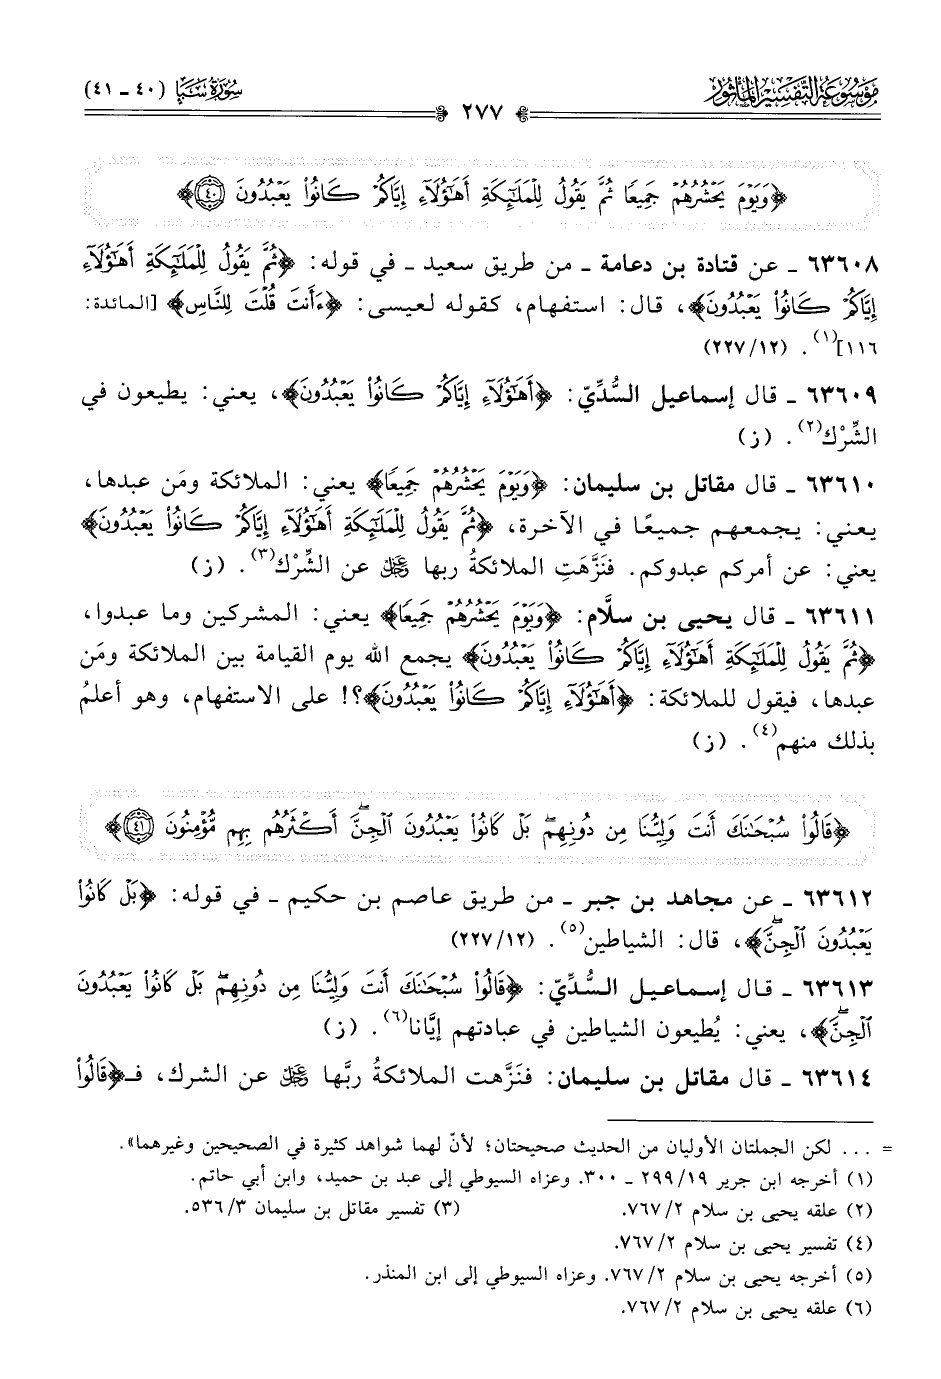 موسوعة التفسير المأثور
سورة سبأ (٤٠ - ٤١)
٢٧٧
﴿وَيَوْمَ يَحْشُرُهُمْ جَمِيعًا ثُمَّ يَقُولُ لِلْمَلَٰٓئِكَةِ أَهَٰٓؤُلَآءِ إِيَّاكُمْ كَانُوا۟ يَعْبُدُونَ ۝٤٠﴾
٦٣٦٠٨ ـ عن قتادة بن دعامة ـ من طريق سعيد ـ في قوله: ﴿ثُمَّ يَقُولُ لِلْمَلَٰٓئِكَةِ أَهَٰٓؤُلَآءِ
إِيَّاكُمْ كَانُوا۟ يَعْبُدُونَ﴾، قال: استفهام، كقوله لعيسى: ﴿ءَأَنتَ قُلْتَ لِلنَّاسِ﴾ [المائدة:
١١٦](١). (١٢/٢٢٧)
٦٣٦٠٩ ـ قال إسماعيل السُّدِّيّ: ﴿أَهَٰٓؤُلَآءِ إِيَّاكُمْ كَانُوا۟ يَعْبُدُونَ﴾، يعني: يطيعون في
الشِّرْك(٢). (ز)
٦٣٦١٠ ـ قال مقاتل بن سليمان: ﴿وَيَوْمَ يَحْشُرُهُمْ جَمِيعًا﴾ يعني: الملائكة ومَن عبدها،
يعني: يجمعهم جميعًا في الآخرة، ﴿ثُمَّ يَقُولُ لِلْمَلَٰٓئِكَةِ أَهَٰٓؤُلَآءِ إِيَّاكُمْ كَانُوا۟ يَعْبُدُونَ﴾
يعني: عن أمركم عبدوكم. فنَزَّهَتِ الملائكةُ ربها ﷻ عن الشِّرْك(٣). (ز)
٦٣٦١١ ـ قال يحيى بن سلَّام: ﴿وَيَوْمَ يَحْشُرُهُمْ جَمِيعًا﴾ يعني: المشركين وما عبدوا،
﴿ثُمَّ يَقُولُ لِلْمَلَٰٓئِكَةِ أَهَٰٓؤُلَآءِ إِيَّاكُمْ كَانُوا۟ يَعْبُدُونَ﴾ يجمع الله يوم القيامة بين الملائكة ومَن
عبدها، فيقول للملائكة: ﴿أَهَٰٓؤُلَآءِ إِيَّاكُمْ كَانُوا۟ يَعْبُدُونَ﴾؟! على الاستفهام، وهو أعلمُ
بذلك منهم(٤). (ز)
﴿قَالُوا۟ سُبْحَٰنَكَ أَنتَ وَلِيُّنَا مِن دُونِهِم ۖ بَلْ كَانُوا۟ يَعْبُدُونَ ٱلْجِنَّ ۖ أَكْثَرُهُم بِهِم مُّؤْمِنُونَ ۝٤١﴾
٦٣٦١٢ ـ عن مجاهد بن جبر ـ من طريق عاصم بن حكيم ـ في قوله: ﴿بَلْ كَانُوا۟
يَعْبُدُونَ ٱلْجِنَّ ۖ﴾، قال: الشياطين(٥). (١٢/٢٢٧)
٦٣٦١٣ ـ قال إسماعيل السُّدِّيّ: ﴿قَالُوا۟ سُبْحَٰنَكَ أَنتَ وَلِيُّنَا مِن دُونِهِم ۖ بَلْ كَانُوا۟ يَعْبُدُونَ
ٱلْجِنَّ ۖ﴾، يعني: يُطيعون الشياطين في عبادتهم إيَّانا(٦). (ز)
٦٣٦١٤ ـ قال مقاتل بن سليمان: فنَزَّهت الملائكةُ ربَّها ﷻ عن الشرك، فـ﴿قَالُوا۟
= ... لكن الجملتان الأوليان من الحديث صحيحتان؛ لأنّ لهما شواهد كثيرة في الصحيحين وغيرهما».
(١) أخرجه ابن جرير ١٩/ ٢٩٩ ـ ٣٠٠. وعزاه السيوطي إلى عبد بن حميد، وابن أبي حاتم.
(٢) علقه يحيى بن سلام ٢/ ٧٦٧. (٣) تفسير مقاتل بن سليمان ٣/ ٥٣٦.
(٤) تفسير يحيى بن سلام ٢/ ٧٦٧.
(٥) أخرجه يحيى بن سلام ٢/ ٧٦٧. وعزاه السيوطي إلى ابن المنذر.
(٦) علقه يحيى بن سلام ٢/ ٧٦٧.